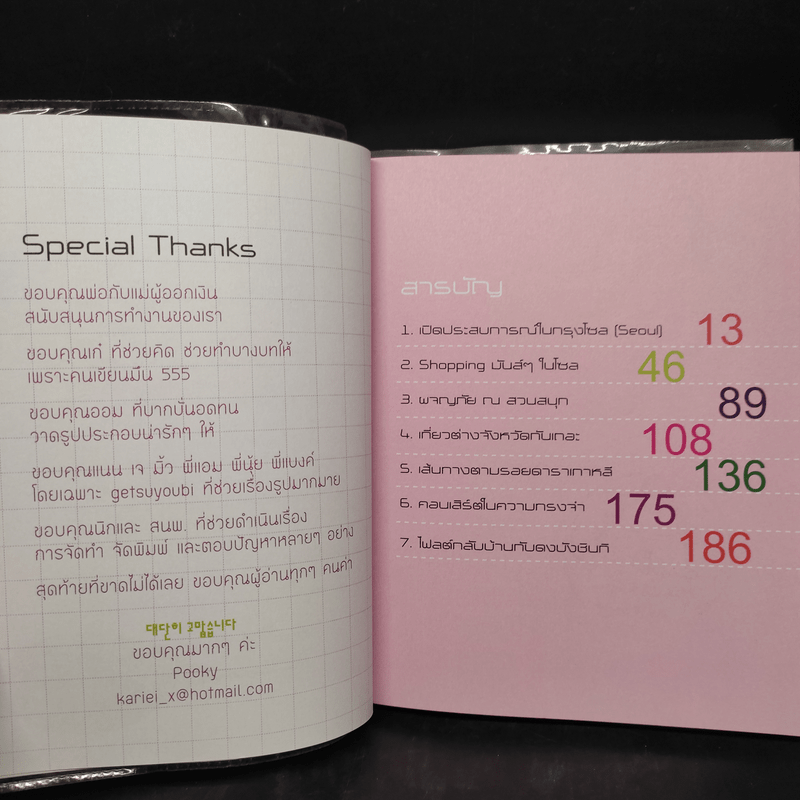 Special Thanks
ขอบคุณพ่อกับแม่ผู้ออกเงิน
สนับสนุนการทำงานของเรา
ขอบคุณเก๋ ที่ช่วยคิด ช่วยทำบางบทให้
เพราะคนเขียนมึน 555
ขอบคุณออม ที่บากบั่นอดทน
วาดรูปประกอบน่ารักๆ ให้
ขอบคุณแนน เจ มิ้ว พี่แอม พี่นุ้ย พี่แบงค์
โดยเฉพาะ getsuyoubi ที่ช่วยเรื่องรูปมากมาย
ขอบคุณนิกและ สนพ. ที่ช่วยดำเนินเรื่อง
การจัดทำ จัดพิมพ์ และตอบปัญหาหลายๆ อย่าง
สุดท้ายที่ขาดไม่ได้เลย ขอบคุณผู้อ่านทุกๆ คนค่า
대단히 고맙습니다
ขอบคุณมากๆ ค่ะ
Pooky
kariei_x@hotmail.com
สารบัญ
1. เปิดประสบการณ์ในกรุงโซล (Seoul) 13
2. Shopping มันส์ๆ ในโซล 46
3. ผจญภัย ณ สวนสนุก 89
4. เที่ยวต่างจังหวัดกันเถอะ 108
5. เส้นทางตามรอยดาราเกาหลี 136
6. คอนเสิร์ตในความทรงจำ 175
7. ไฟลต์กลับบ้านกับดงบังชินกิ 186